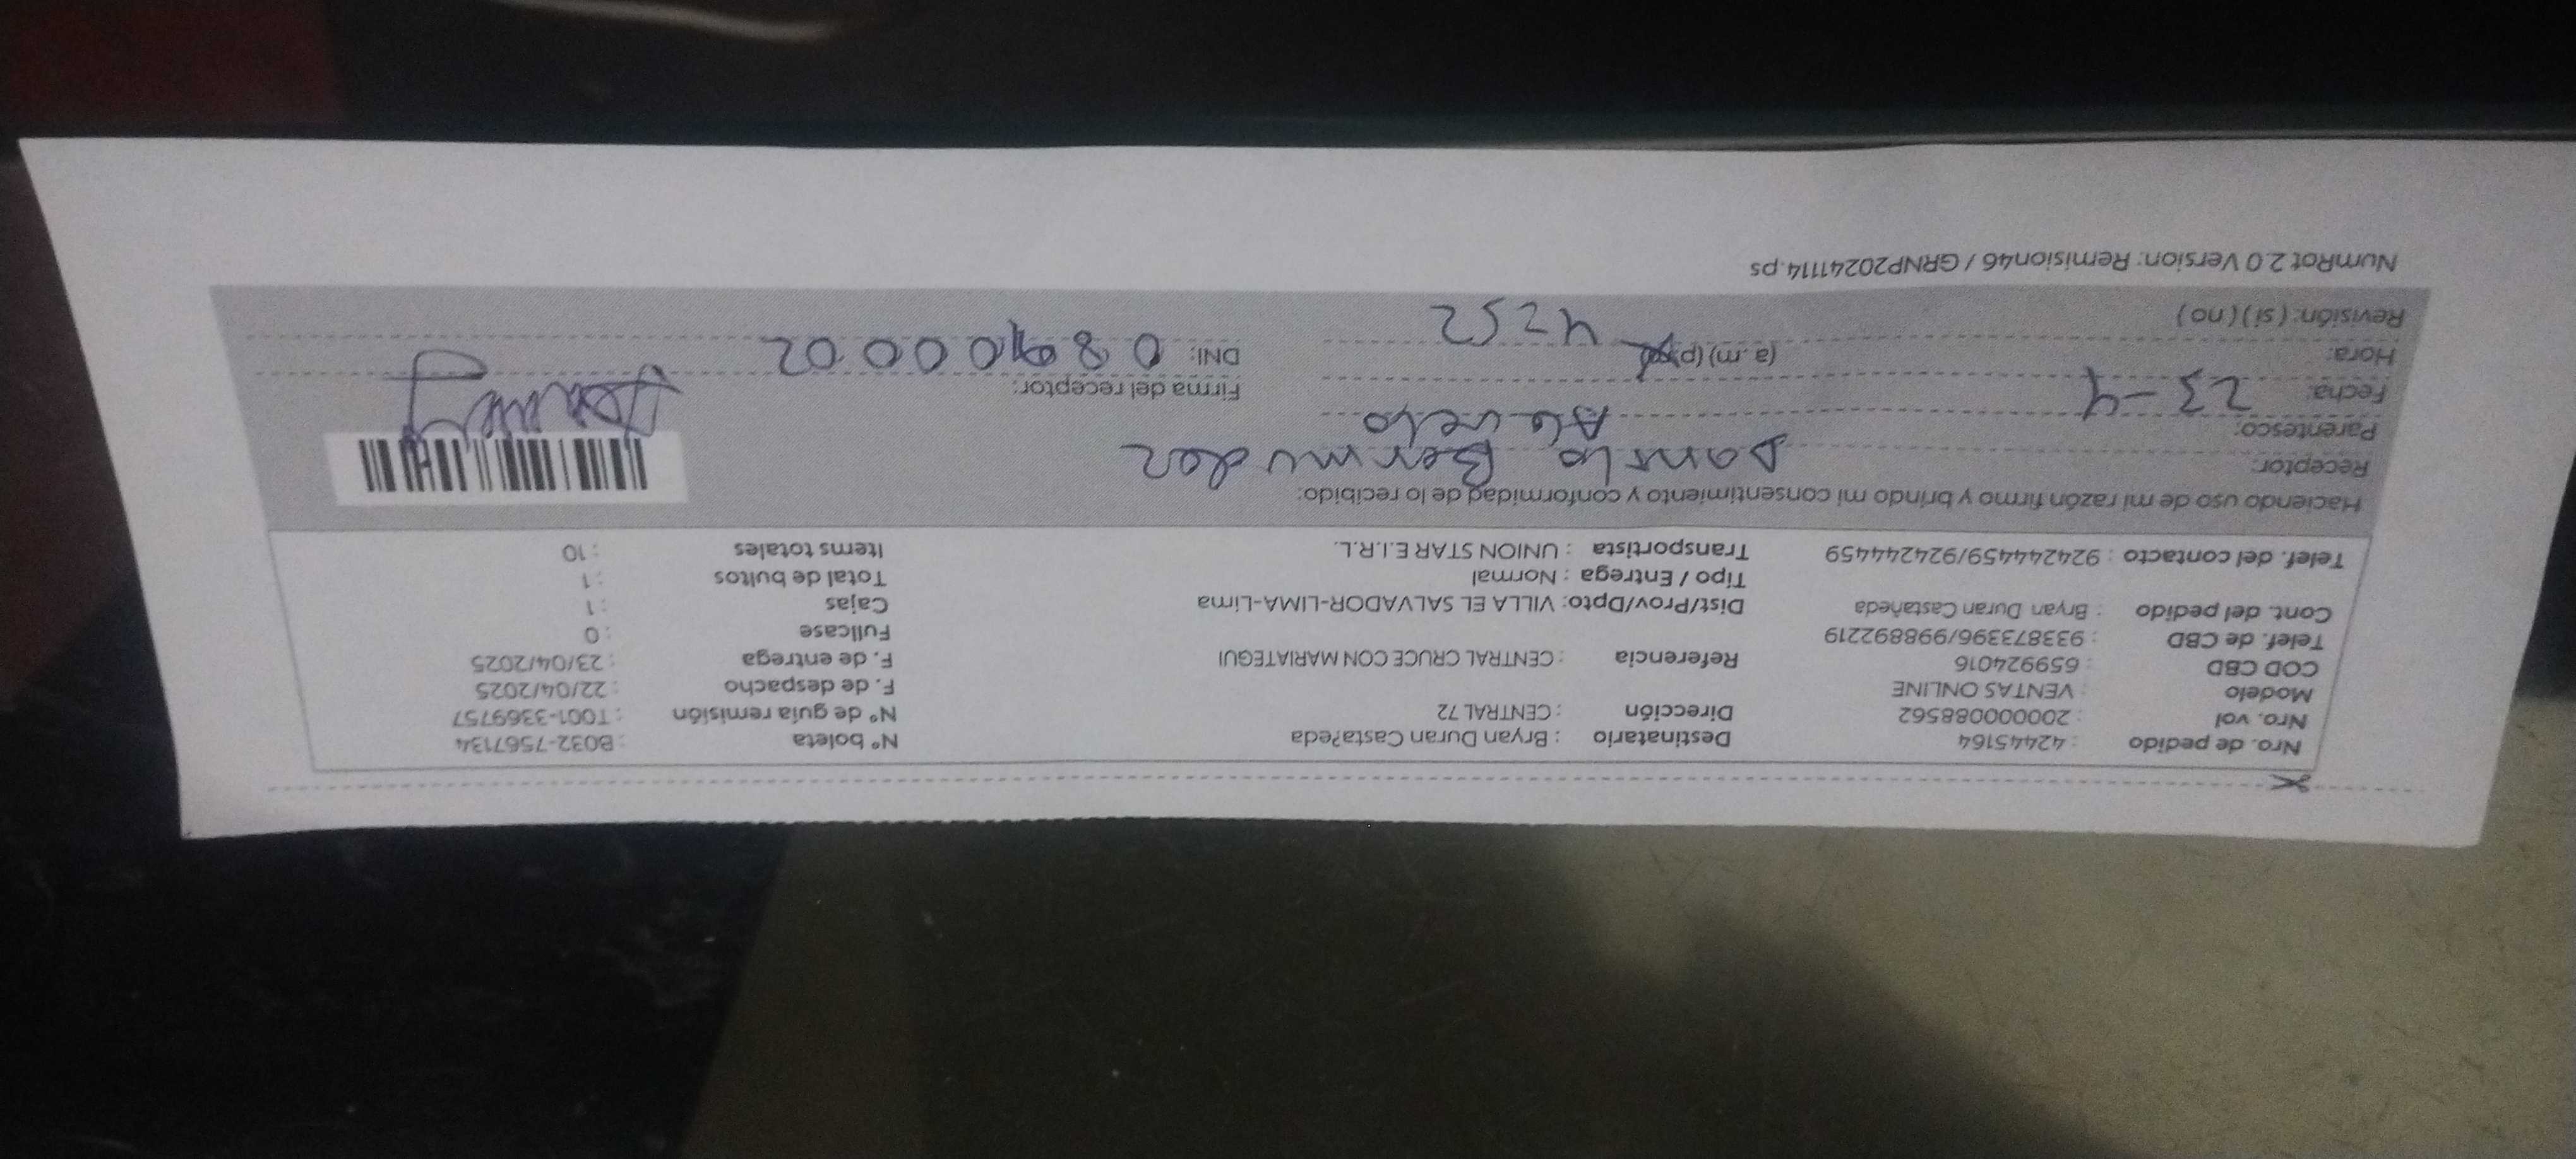 Nro. de pedido : 42445164 Destinatario : Bryan Duran Casta?eda N° boleta : B032-7567134
Nro. vol : 2000008&#8203;8562 Dirección : CENTRAL 72 N° de guía remisión : T001-3369757
Modelo : VENTAS ONLINE F. de despacho : 22/04/2025
COD CBD : 659924016 Referencia : CENTRAL CRUCE CON MARIATEGUI F. de entrega : 23/04/2025
Telef. de CBD : 933873396/998892219 Fullcase : 0
Cont. del pedido : Bryan Duran Castañeda Dist/Prov/Dpto: VILLA EL SALVADOR-LIMA-Lima Cajas : 1
Tipo / Entrega : Normal Total de bultos : 1
Telef. del contacto : 924244459/924244459 Transportista : UNION STAR E.I.R.L. Items totales : 10
Haciendo uso de mi razón firmo y brindo mi consentimiento y conformidad de lo recibido:
Receptor: Danilo Bermudez
Parentesco: Abuelo
Fecha: 23-4 Firma del receptor:
Hora: (a.m) (p.m) 4:52 DNI:
Revisión: (si) (no)
NumRot 2.0 Version: Remision46 / GRNP20241114.ps